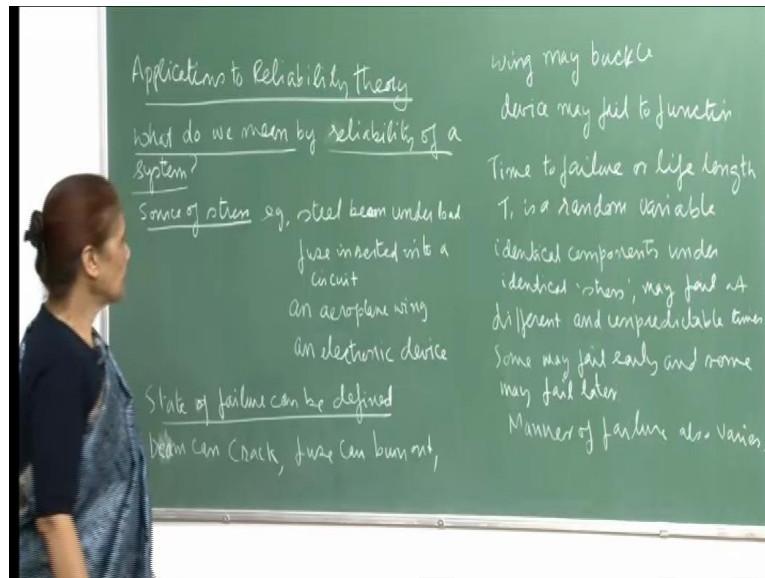 Applications to Reliability theory
What do we mean by reliability of a
system?
Source of stress eg, steel beam under load
fuse inserted into a
circuit
an aeroplane wing
an electronic device
State of failure can be defined
beam can crack, fuse can burn out,
wing may buckle
device may fail to function
Time to failure or life length
T, is a random variable
identical components under
identical 'stress', may fail at
different and unpredictable times
Some may fail early and some
may fail later
Manner of failure also varies